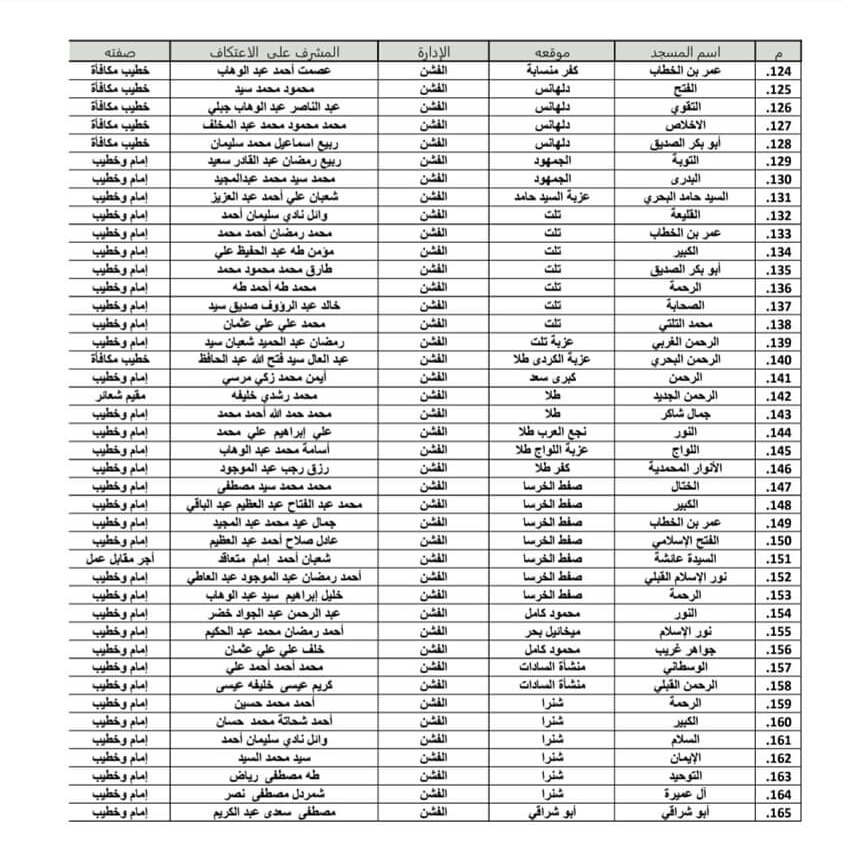 م اسم المسجد موقعه الإدارة المشرف على الاعتكاف صفته
124. عمر بن الخطاب كفر منسابة الفشن عصمت أحمد عبد الوهاب خطيب مكافأة
125. الفتح دلهانس الفشن محمود محمد سيد خطيب مكافأة
126. التقوي دلهانس الفشن عبد الناصر عبد الوهاب جبلي خطيب مكافأة
127. الاخلاص دلهانس الفشن محمد محمود محمد عبد المخلف خطيب مكافأة
128. أبو بكر الصديق دلهانس الفشن ربيع اسماعيل محمد سليمان خطيب مكافأة
129. التوبة الجمهود الفشن ربيع رمضان عبد القادر سعيد إمام وخطيب
130. البدرى الجمهود الفشن محمد سيد محمد عبدالمجيد إمام وخطيب
131. السيد حامد البحري عزبة السيد حامد الفشن شعبان علي أحمد عبد العزيز إمام وخطيب
132. القليعة تلت الفشن وائل نادي سليمان أحمد إمام وخطيب
133. عمر بن الخطاب تلت الفشن محمد رمضان أحمد محمد إمام وخطيب
134. الكبير تلت الفشن مؤمن طه عبد الحفيظ علي إمام وخطيب
135. أبو بكر الصديق تلت الفشن طارق محمد محمود محمد إمام وخطيب
136. الرحمة تلت الفشن محمد طه أحمد طه إمام وخطيب
137. الصحابة تلت الفشن خالد عبد الرؤوف صديق سيد إمام وخطيب
138. محمد التلتي تلت الفشن محمد علي علي عثمان إمام وخطيب
139. الرحمن الغربي عزبة تلت الفشن رمضان عبد الحميد شعبان سيد إمام وخطيب
140. الرحمن البحري عزبة الكردى طلا الفشن عبد العال سيد فتح الله عبد الحافظ خطيب مكافأة
141. الرحمن كبرى سعد الفشن أيمن محمد زكي مرسي إمام وخطيب
142. الرحمن الجديد طلا الفشن محمد رشدي خليفه مقيم شعائر
143. جمال شاكر طلا الفشن محمد حمد الله أحمد محمد إمام وخطيب
144. النور نجع العرب طلا الفشن علي إبراهيم علي محمد إمام وخطيب
145. اللواج عزبة اللواج طلا الفشن أسامة محمد عبد الوهاب إمام وخطيب
146. الأنوار المحمدية كفر طلا الفشن رزق رجب عبد الموجود إمام وخطيب
147. الختال صفط الخرسا الفشن محمد محمد سيد مصطفى إمام وخطيب
148. الكبير صفط الخرسا الفشن محمد عبد الفتاح عبد العظيم عبد الباقي إمام وخطيب
149. عمر بن الخطاب صفط الخرسا الفشن جمال عيد محمد عبد المجيد إمام وخطيب
150. الفتح الإسلامي صفط الخرسا الفشن عادل صلاح أحمد عبد العظيم إمام وخطيب
151. السيدة عائشة صفط الخرسا الفشن شعبان أحمد إمام متعاقد أجر مقابل عمل
152. نور الإسلام القبلي صفط الخرسا الفشن أحمد رمضان عبد الموجود عبد العاطي إمام وخطيب
153. الرحمة صفط الخرسا الفشن خليل إبراهيم سيد عبد الوهاب إمام وخطيب
154. النور محمود كامل الفشن عبد الرحمن عبد الجواد خضر إمام وخطيب
155. نور الإسلام ميخائيل بحر الفشن أحمد رمضان محمد عبد الحكيم إمام وخطيب
156. جواهر غريب محمود كامل الفشن خلف علي علي عثمان إمام وخطيب
157. الوسطاني منشأة السادات الفشن محمد أحمد أحمد علي إمام وخطيب
158. الرحمن القبلي منشأة السادات الفشن كريم عيسى خليفه عيسى إمام وخطيب
159. الرحمة شنرا الفشن أحمد محمد حسين إمام وخطيب
160. الكبير شنرا الفشن أحمد شحاتة محمد حسان إمام وخطيب
161. السلام شنرا الفشن وائل نادي سليمان أحمد إمام وخطيب
162. الإيمان شنرا الفشن سيد محمد السيد إمام وخطيب
163. التوحيد شنرا الفشن طه مصطفى رياض إمام وخطيب
164. آل عميرة شنرا الفشن شمردل مصطفى نصر إمام وخطيب
165. أبو شراقي أبو شراقي الفشن مصطفى سعدى عبد الكريم إمام وخطيب